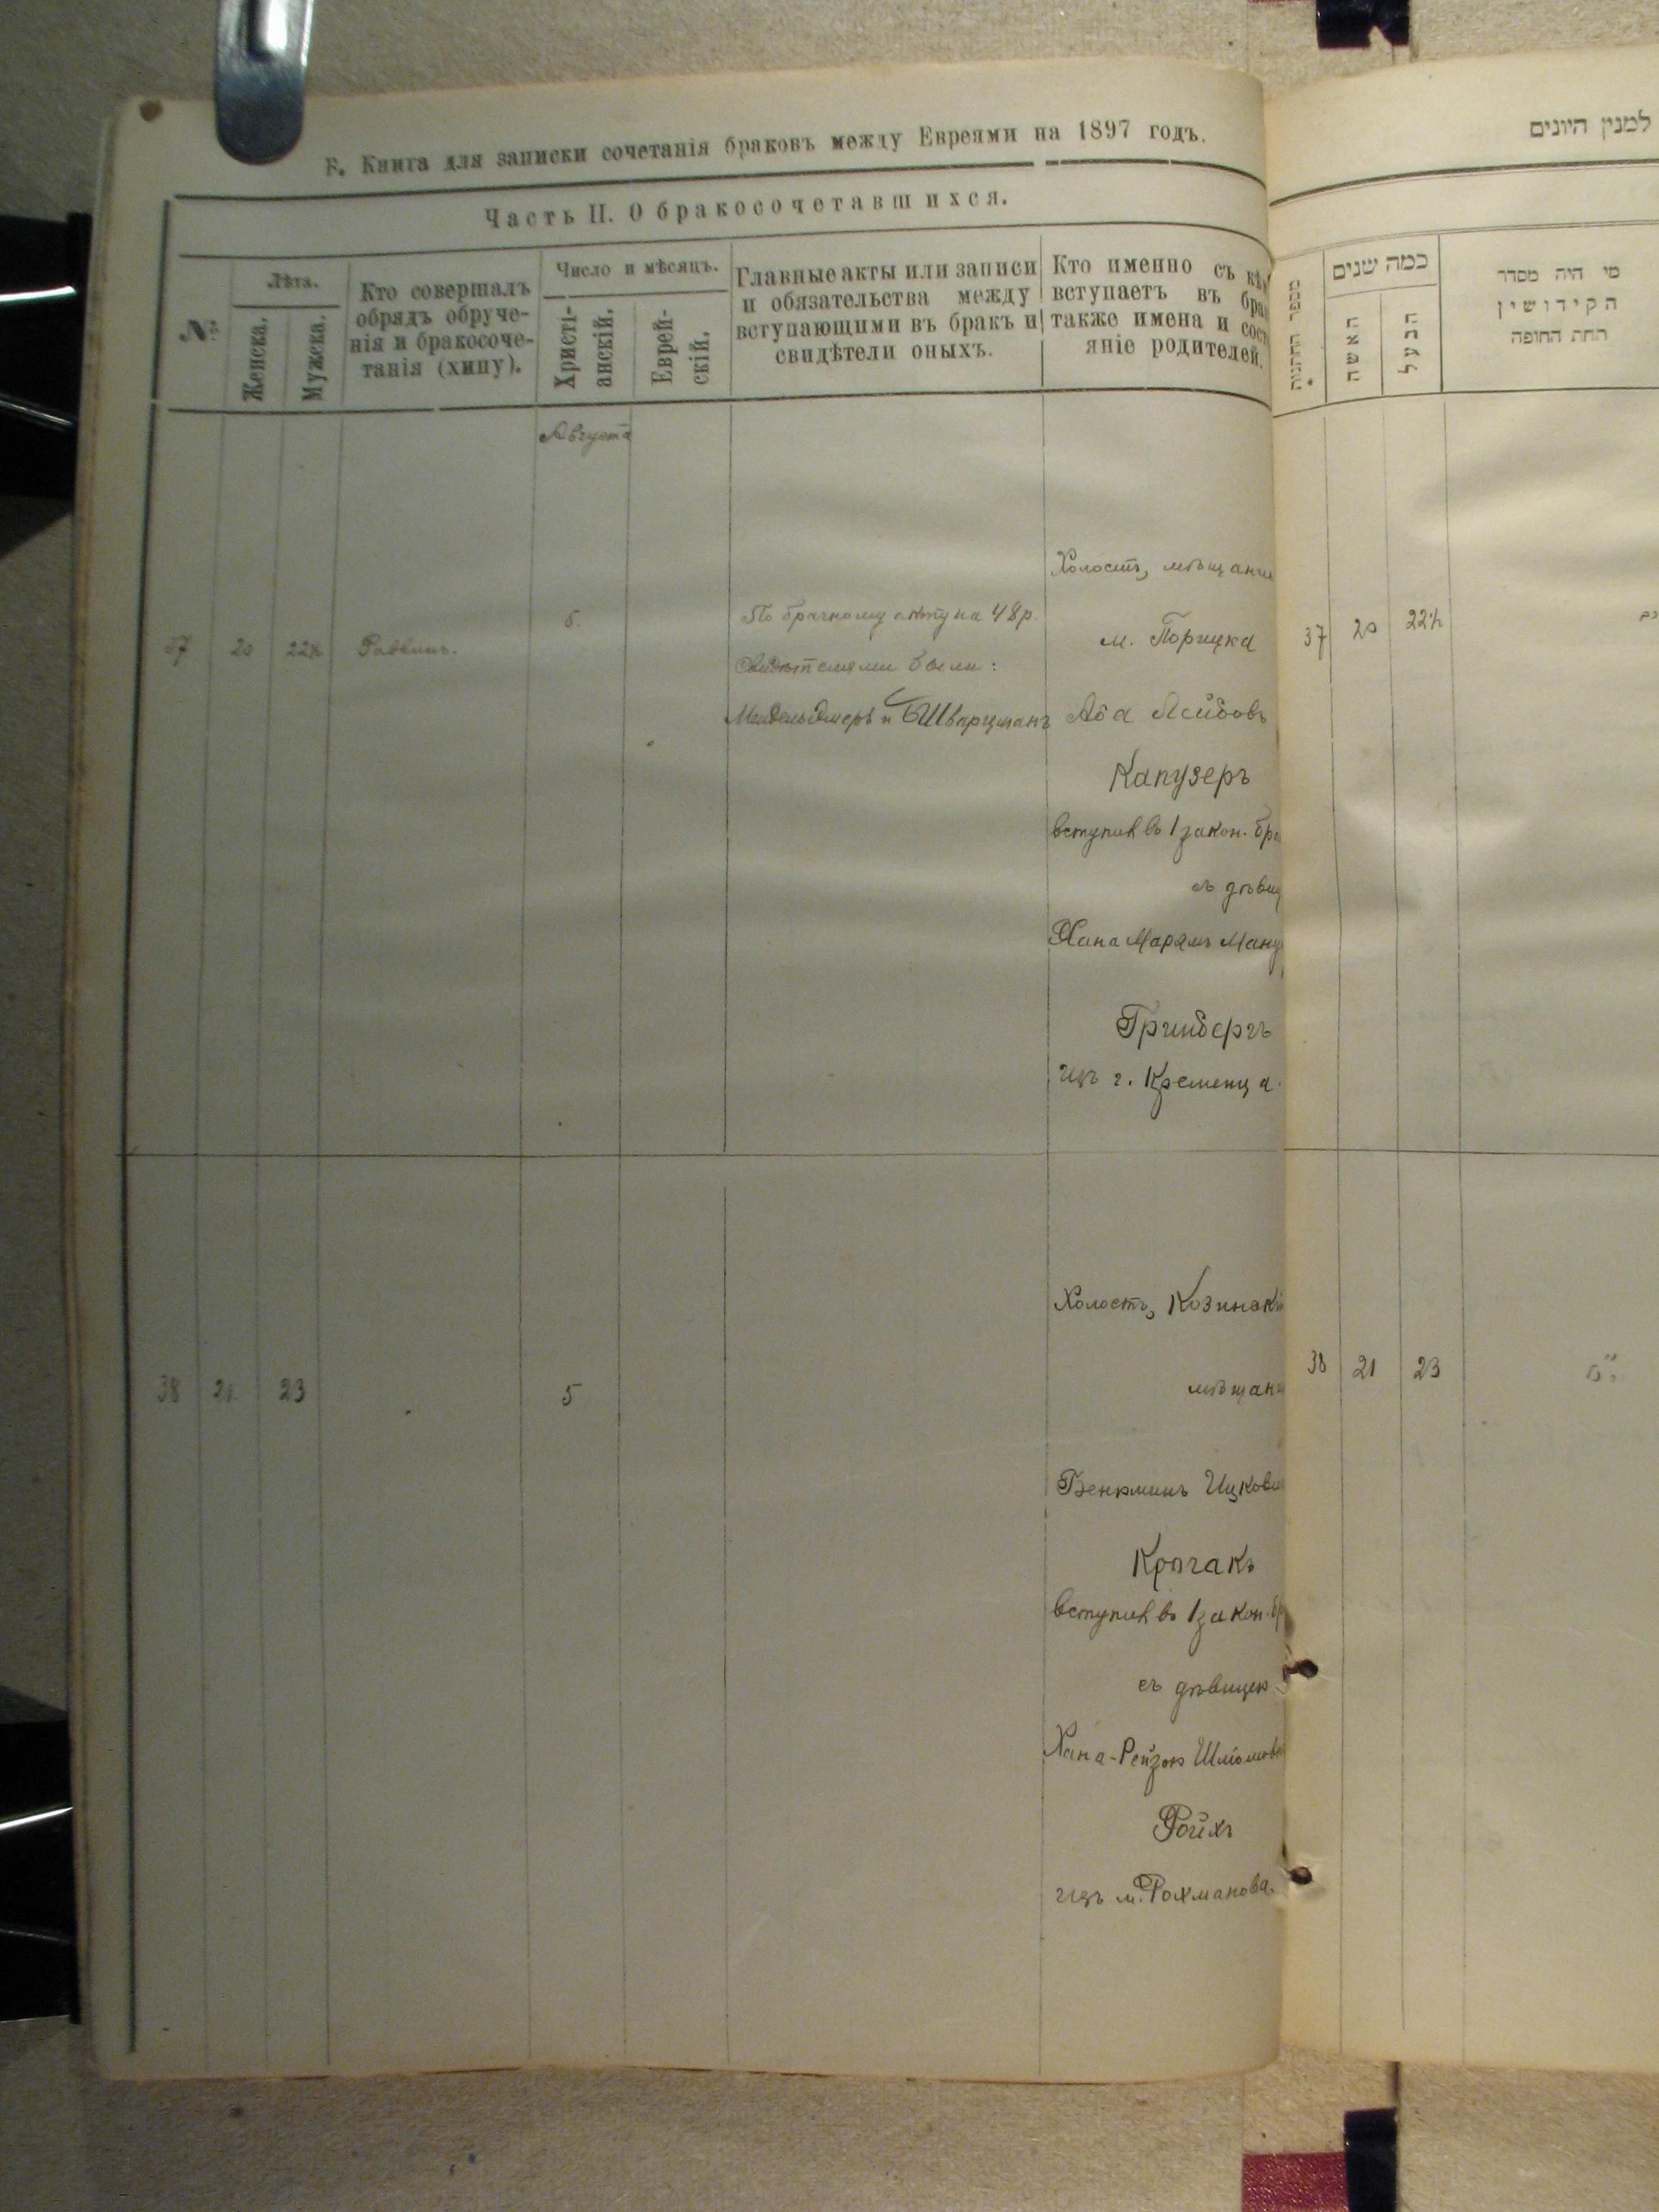 В. Книга для записки сочетанія браковъ между Евреями на 1897 годъ.
Часть II. О бракосочетавшихся.
№
Лѣта.
Женска.
Мужеска.
Кто совершалъ
обрядъ обруче-
нія и бракосоче-
танія (хипу).
Число и мѣсяцъ.
Христі-
анскій.
Еврей-
скій.
Главные акты или записи
и обязательства между
вступающими въ бракъ и
свидѣтели оныхъ.
Кто именно съ
вступаетъ въ бра
также имена и сост
яніе родителей.
Августа
37 20 22½ Раввинъ.
По брачному акту на 48 р.
Свидѣтелями были:
и Шварцманъ
Холостъ, мѣщанин
м. Порицка
Аба Лейбовъ
Капузеръ
вступилъ въ 1 закон. бра
съ дѣвиц
Хана Марямъ
Гринбергъ
изъ г. Кременца.
38 21 23
5
Холостъ,
мѣщани
Венямин Ицкови
Крочакъ
вступилъ въ 1 закон. бр
съ дѣвицею
Хана-Рейзею Шліомов
Ройхъ
изъ м. Рохманова.
למנין היונים
מספר החתונות
כמה שנים
האשה
הבעל
מי היה מסדר
הקידושין
תחת החופה
37 20 22½
38 21 23